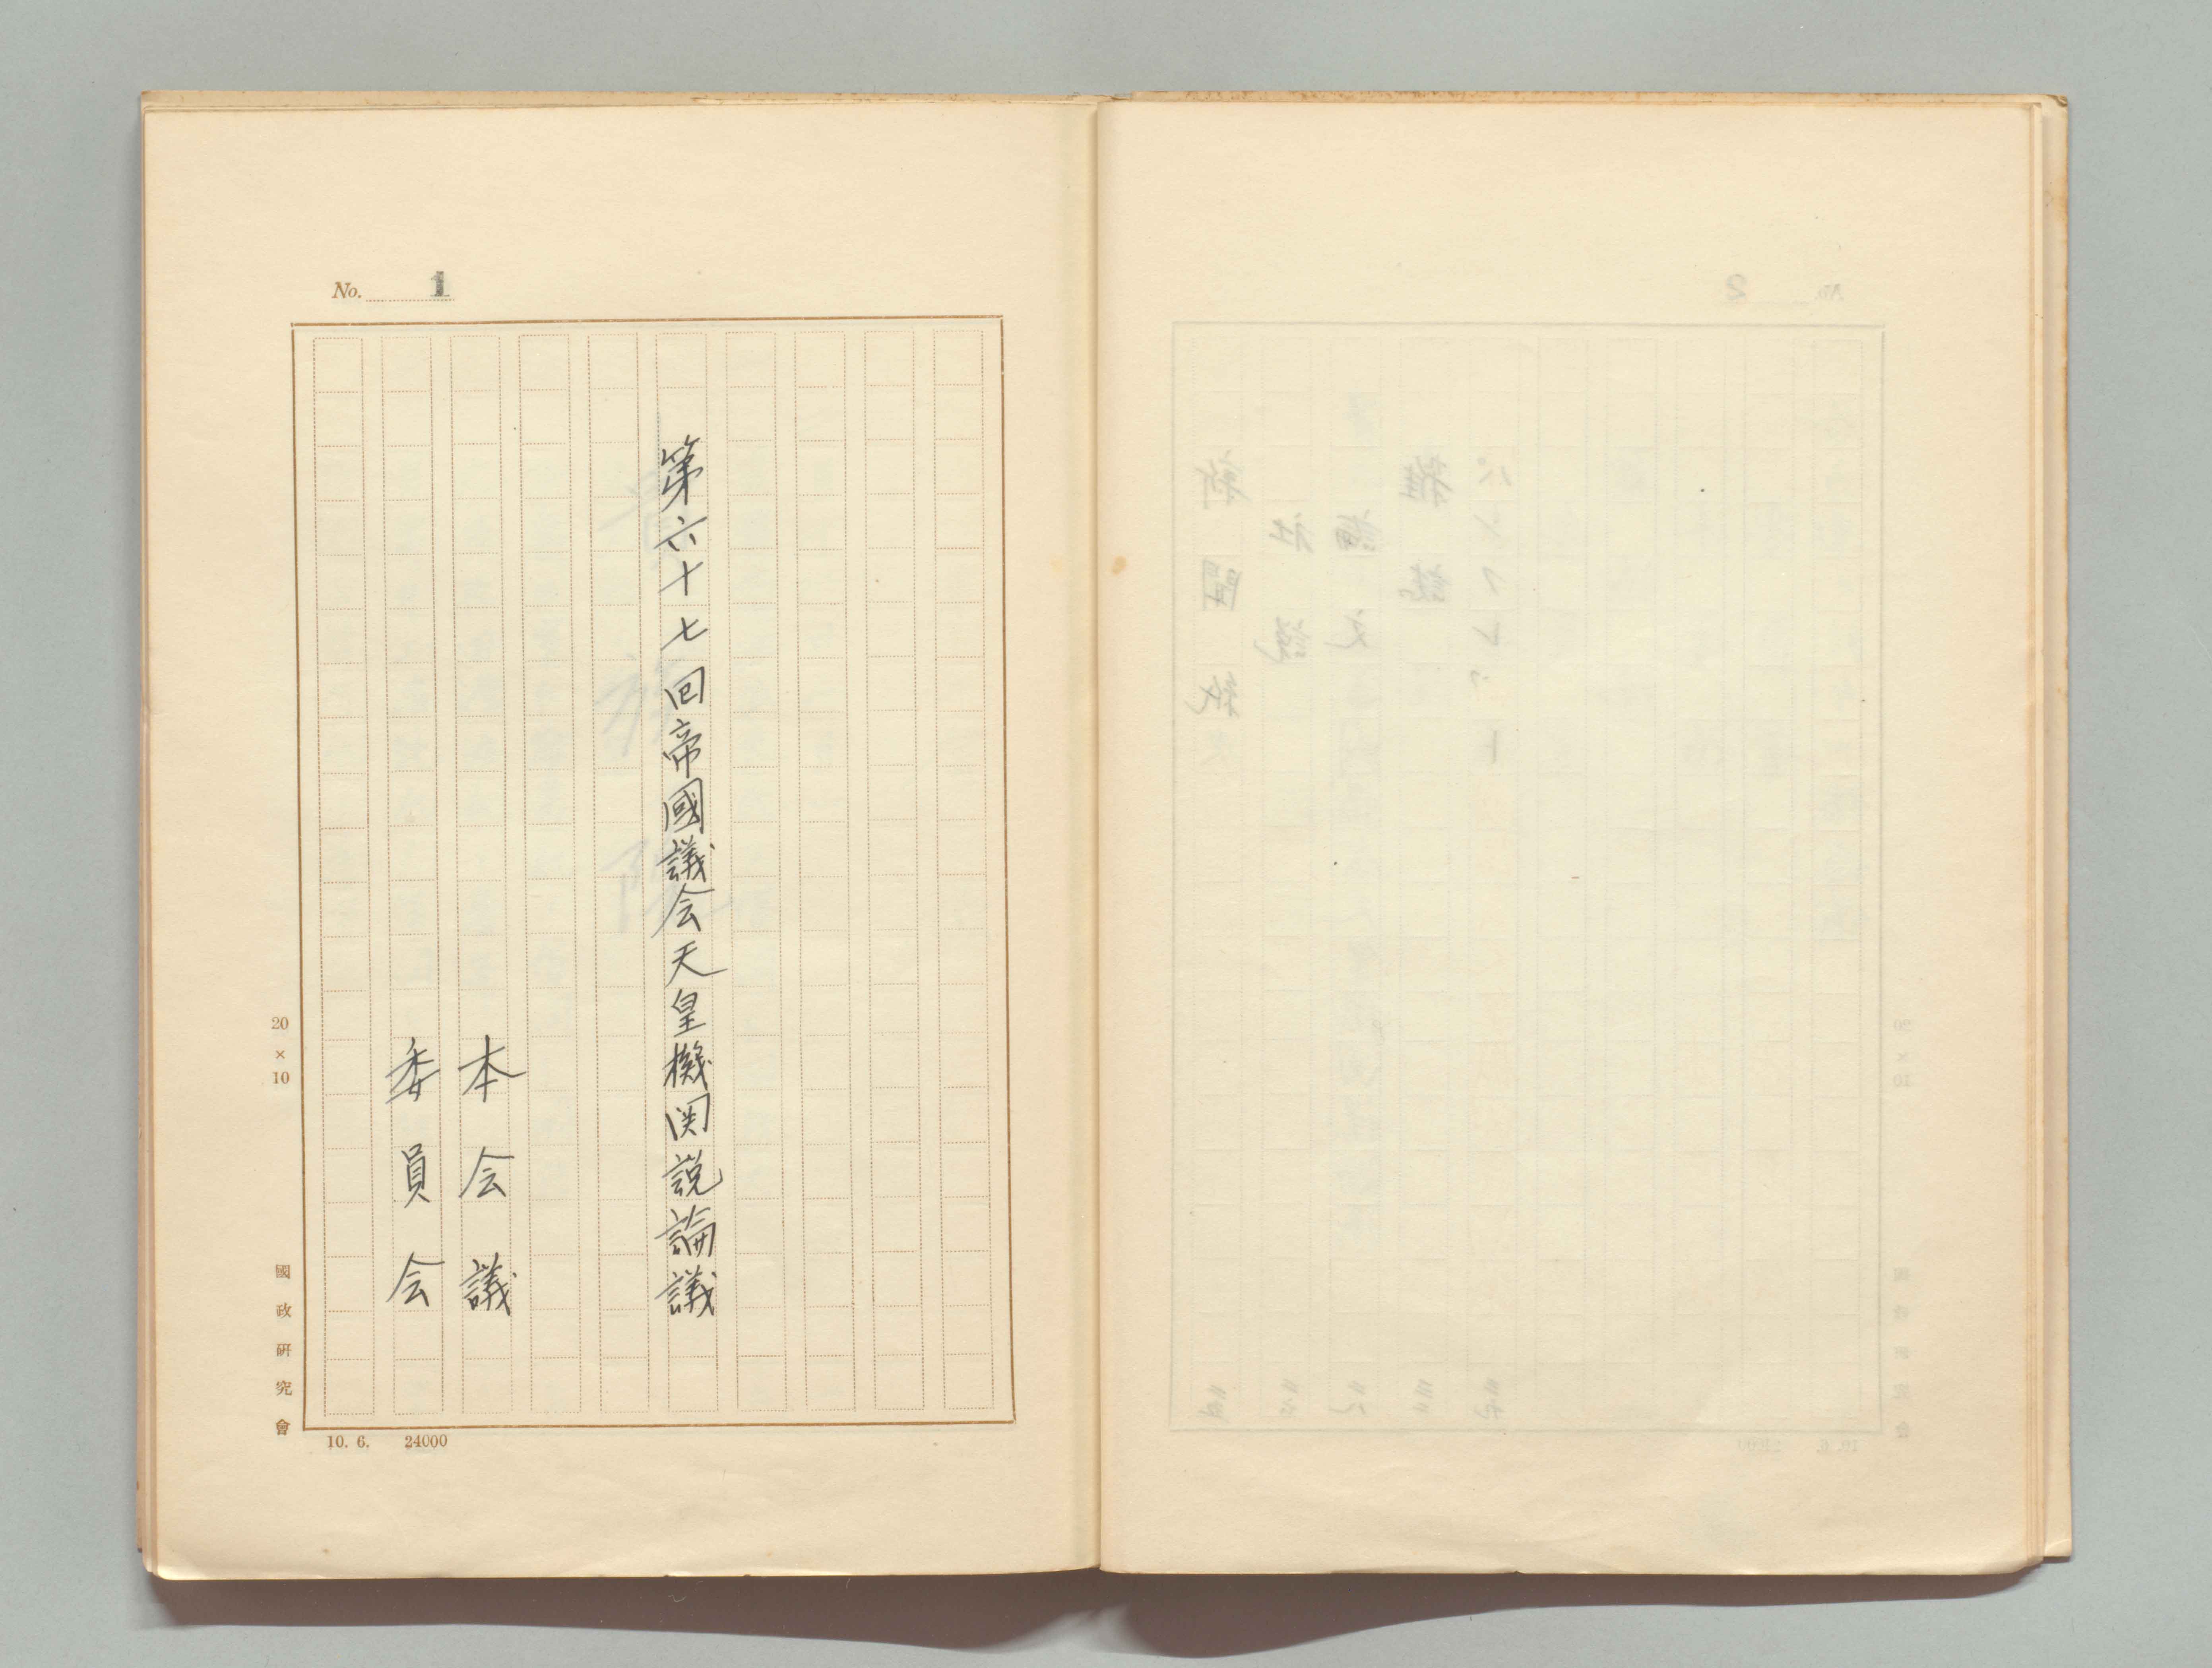 No. 1
第六十七回帝國議会天皇機関説論議
本会議
委員会
20×10
國政研究會
10. 6. 24000